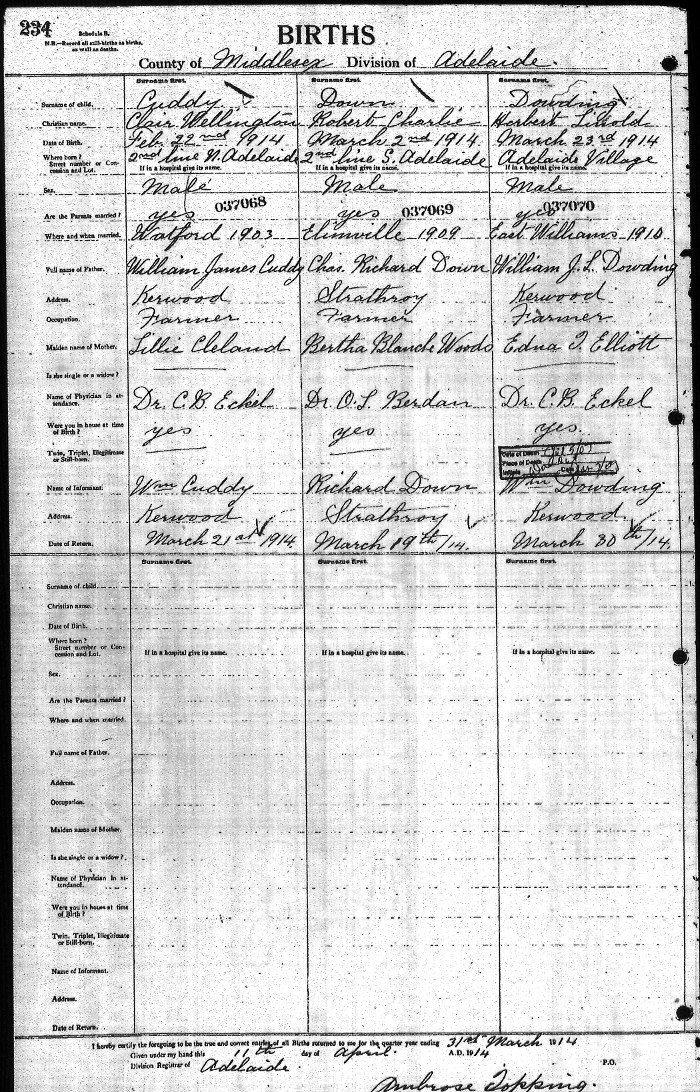 234
Schedule B.
N.B.—Record all still-births as births, as well as deaths.
BIRTHS
County of Middlesex Division of Adelaide.
Surname first. Surname first. Surname first.
Surname of child. Cuddy Down Dowding
Christian name. Clair Wellington Robert Charlie Herbert
Date of Birth. Feb. 22nd 1914 March 2nd 1914 March 23rd 1914
Where born? 2nd line N. Adelaide 2nd line S. Adelaide Adelaide Village
Street number or Concession and Lot. If in a hospital give its name. If in a hospital give its name. If in a hospital give its name.
Sex. Male Male Male
037068 037069 037070
Are the Parents married? yes yes yes
Where and when married. Watford 1903 Elimville 1909 East Williams 1910
Full name of Father. William James Cuddy Chas. Richard Down William J. L. Dowding
Address. Kerwood Strathroy Kerwood
Occupation. Farmer Farmer Farmer
Maiden name of Mother. Lillie Cleland Bertha Blanche Woods Edna J. Elliott
Is she single or a widow?
Name of Physician in attendance. Dr. C. B. Eckel Dr. O. L. Berdan Dr. C. B. Eckel
Were you in house at time of Birth? yes yes yes.
Twin, Triplet, Illegitimate or Still-born.
Date of Death
Place of Death
Initials Date
Name of Informant. Wm Cuddy Richard Down Wm Dowding
Address. Kerwood Strathroy Kerwood
Date of Return. March 21st 1914. March 19th/14. March 30th/14.
Surname first. Surname first. Surname first.
Surname of child.
Christian name.
Date of Birth.
Where born?
Street number or Concession and Lot. If in a hospital give its name. If in a hospital give its name. If in a hospital give its name.
Sex.
Are the Parents married?
Where and when married.
Full name of Father.
Address.
Occupation.
Maiden name of Mother.
Is she single or a widow?
Name of Physician in attendance.
Were you in house at time of Birth?
Twin, Triplet, Illegitimate or Still-born.
Name of Informant.
Address.
Date of Return.
I hereby certify the foregoing to be the true and correct entries of all Births returned to me for the quarter year ending 31st March 1914
Given under my hand this 11th day of April. A.D. 1914
Division Registrar of Adelaide. P.O.
Ambrose Topping.